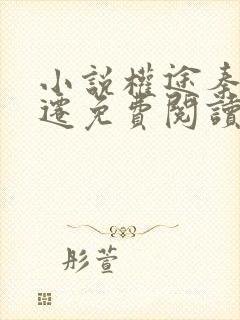 小説權途秦
遷免費閱讀
彤萱